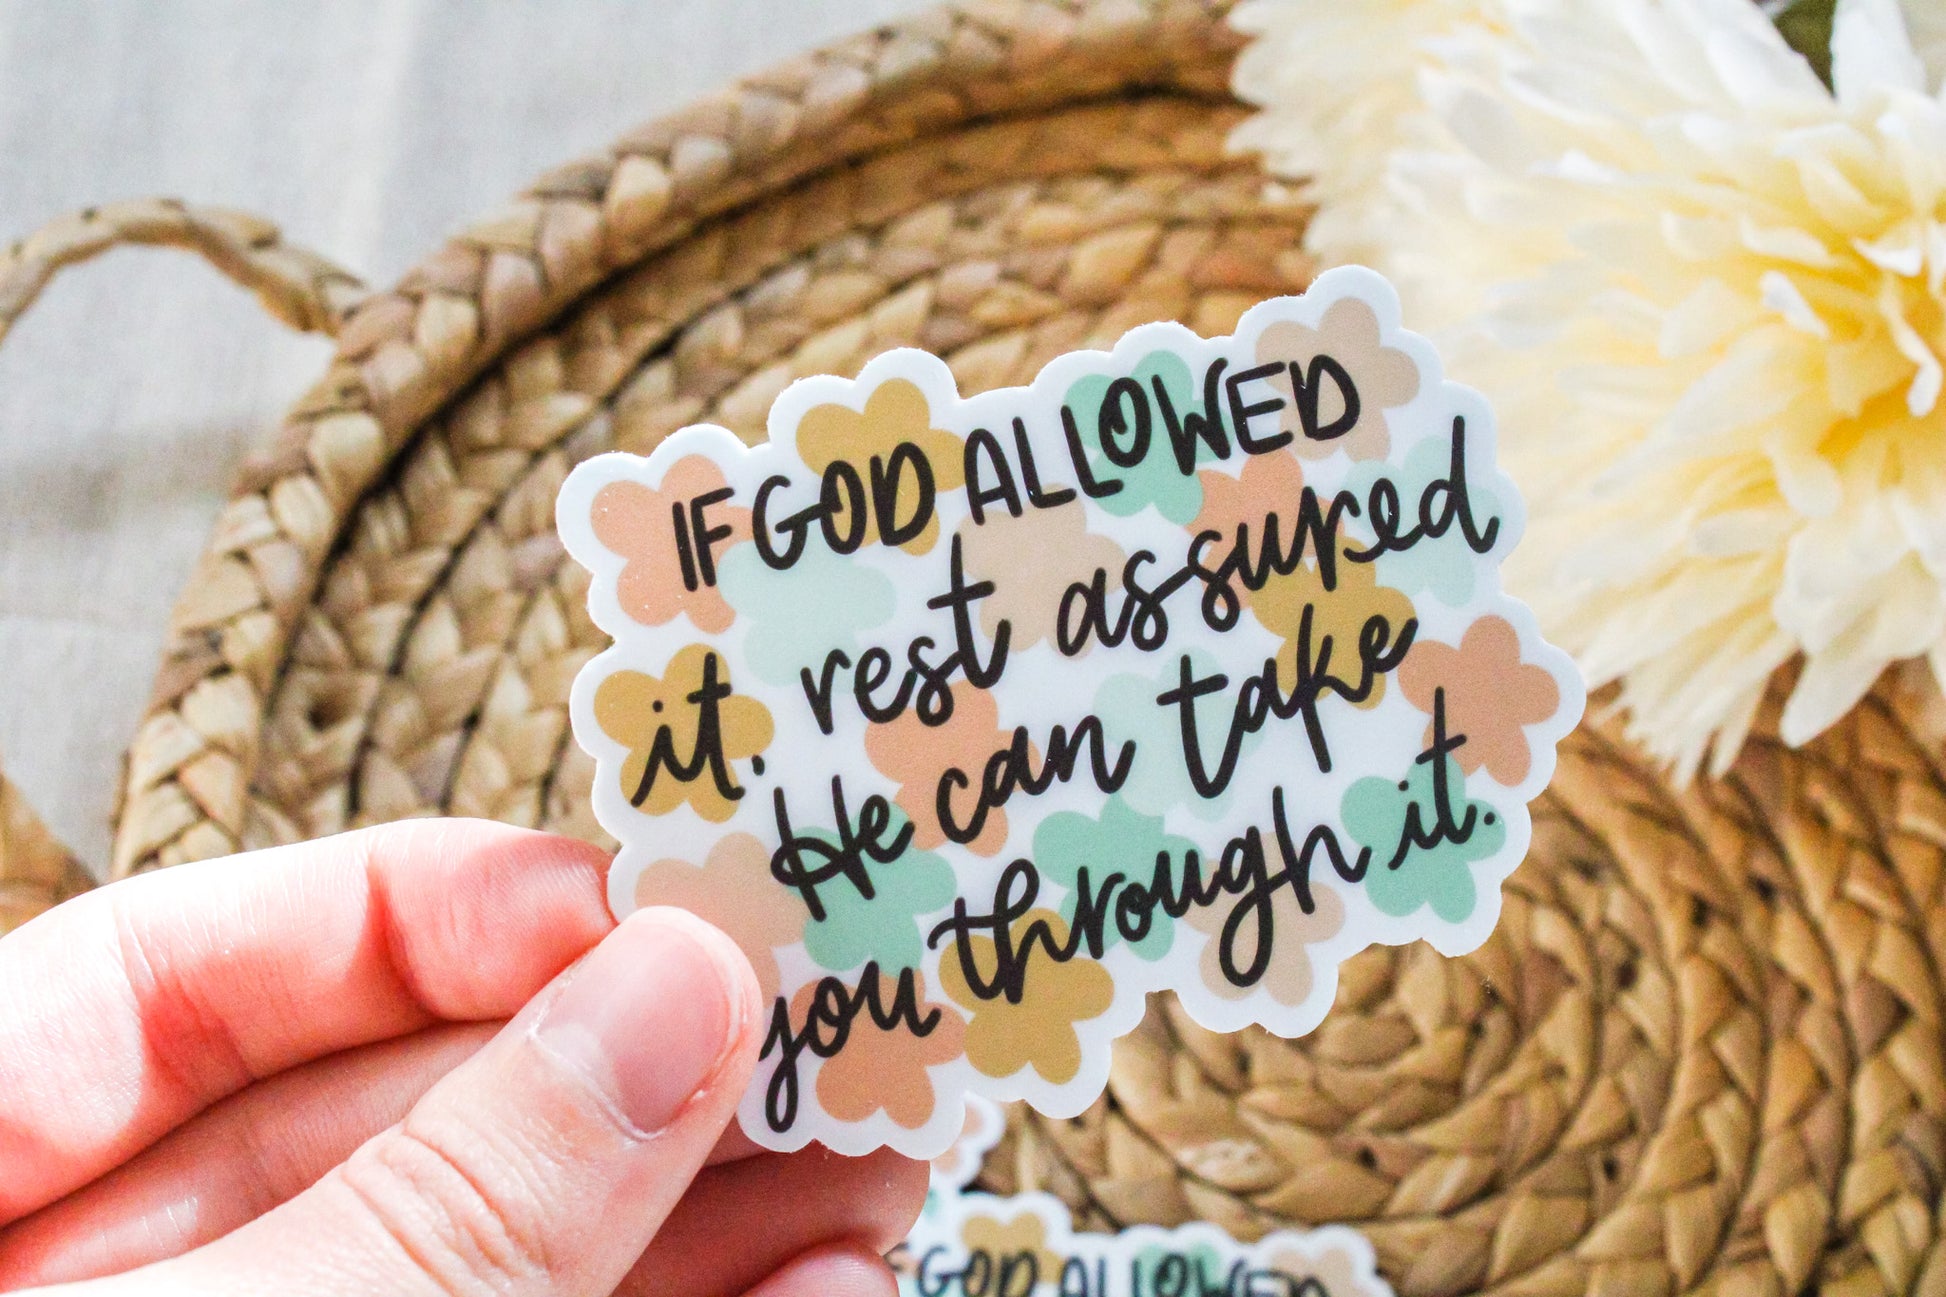 IF GOD ALLOWED
it, rest assured
He can take
you through it.
IF GOD ALLOWED